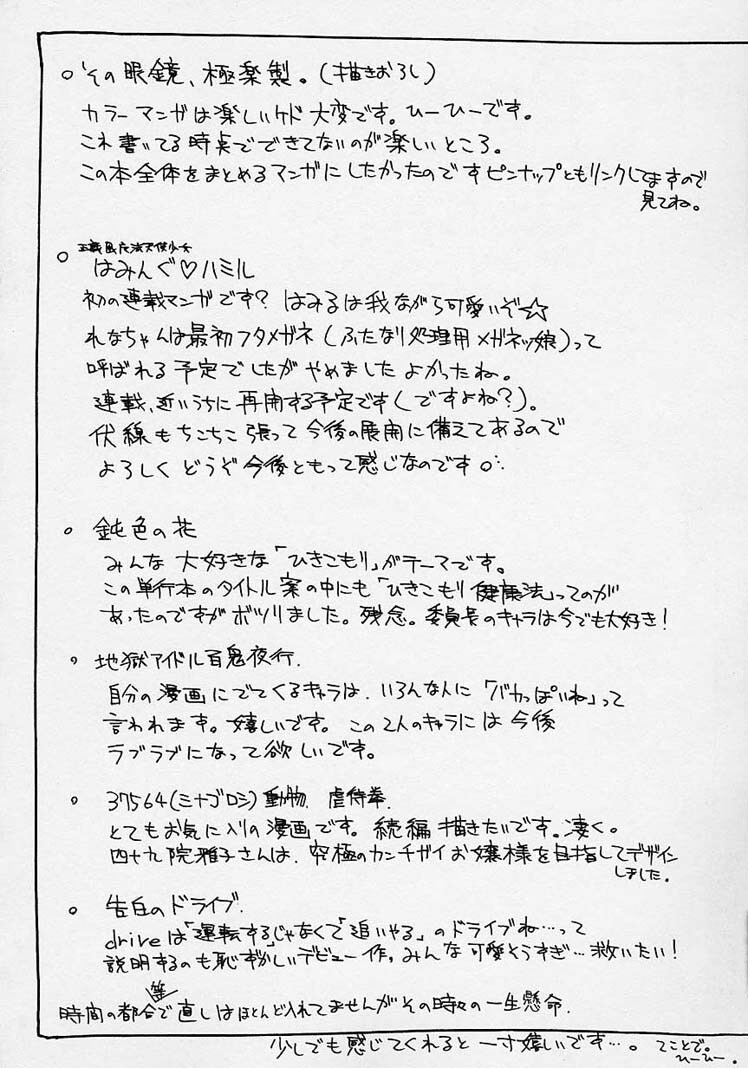 ○その眼鏡、極楽製。(描きおろし)
カラーマンガは楽しいケド大変です。ひーひーです。
これ書いてる時点でできてないのが楽しいところ。
この本全体をまとめるマンガにしたかったのですピンナップともリンクしてますので
見てね。
○はみんぐ♡ハミル
初の連載マンガです?はみるは我ながら可愛いぞ☆
れなちゃんは最初フタメガネ(ふたなり処理用メガネッ娘)って
呼ばれる予定でしたがやめましたよかったね。
連載、近いうちに再開する予定です(ですよね?)。
伏線もちこちこ張って今後の展開に備えてあるので
よろしくどうぞ今後ともって感じなのです
○鈍色の花
みんな大好きな「ひきこもり」がテーマです。
この単行本のタイトル案の中にも「ひきこもり健康法」ってのが
あったのですがボツりました。残念。委員長のキャラは今でも大好き!
○地獄アイドル百鬼夜行.
自分の漫画にでてくるキャラは、いろんな人に「バカっぽいね」って
言われます。嬉しいです。この2人のキャラには今後
ラブラブになって欲しいです。
○37564(ミナゴロシ)動物虐待拳.
とてもお気に入りの漫画です。続編描きたいです。凄く。
四十九院雅子さんは、究極のカンチガイお嬢様を目指してデザイン
しました。
○告白のドライブ.
driveは「運転する」じゃなくて「追いやる」のドライブね…って
説明するのも恥ずかしいデビュー作。みんな可愛そうすぎ…救いたい!
時間の都合等で直しはほとんど入れてませんがその時々の一生懸命.
少しでも感じてくれると一寸嬉しいです…。てことで。
ひーひー.